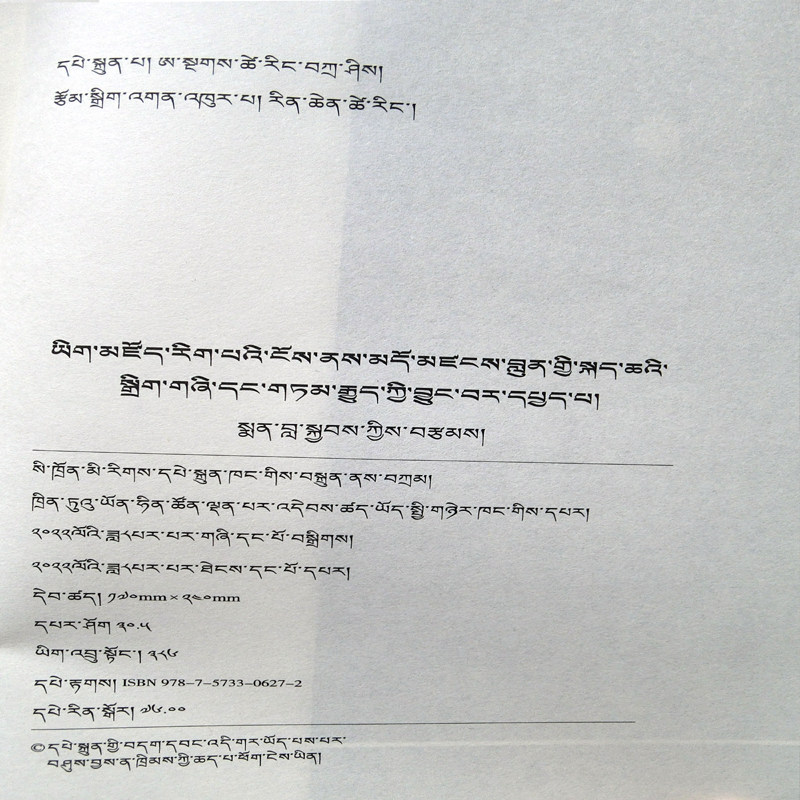 དཔེ་སྐྲུན་པ། ཨ་སྔགས་ཚེ་རིང་བཀྲ་ཤིས།
རྩོམ་སྒྲིག་འགན་འཁུར་པ། རིན་ཆེན་ཚེ་རིང་།
ཡིག་མཛོད་རིག་པའི་ངོས་ནས་མདོ་མཛངས་བླུན་གྱི་སྐད་ཆའི་
སྒྲིག་གཞི་དང་གཏམ་རྒྱུད་ཀྱི་བྱུང་བར་དཔྱད་པ།
སྨན་བླ་སྐྱབས་ཀྱིས་བརྩམས།
སི་ཁྲོན་མི་རིགས་དཔེ་སྐྲུན་ཁང་གིས་བསྐྲུན་ནས་བཀྲམ།
ཁྲིན་ཏུའུ་ཡོན་ཧྲིན་ཚོན་ལྡན་པར་འདེབས་ཚད་ཡོད་སྤྱི་གཉེར་ཁང་གིས་དཔར།
༢༠༢༢ལོའི་ཟླ༨པར་པར་གཞི་དང་པོ་བསྒྲིགས།
༢༠༢༢ལོའི་ཟླ༨པར་པར་ཐེངས་དང་པོ་དཔར།
དེབ་ཚད། ༡༧༠mm × ༢༤༠mm
དཔར་ཤོག ༢༠.༥
ཡིག་འབྲུ་སྟོང་། ༢༨༦
དཔེ་རྟགས། ISBN 978-7-5733-0627-2
དཔེ་རིན་སྒོར། ༧༦.༠༠
© དཔེ་སྐྲུན་གྱི་བདག་དབང་འདི་གར་ཡོད་པས་པར་
བཤུས་བྱས་ན་ཁྲིམས་ཀྱི་ཆད་པ་ཕོག་ངེས་ཡིན།